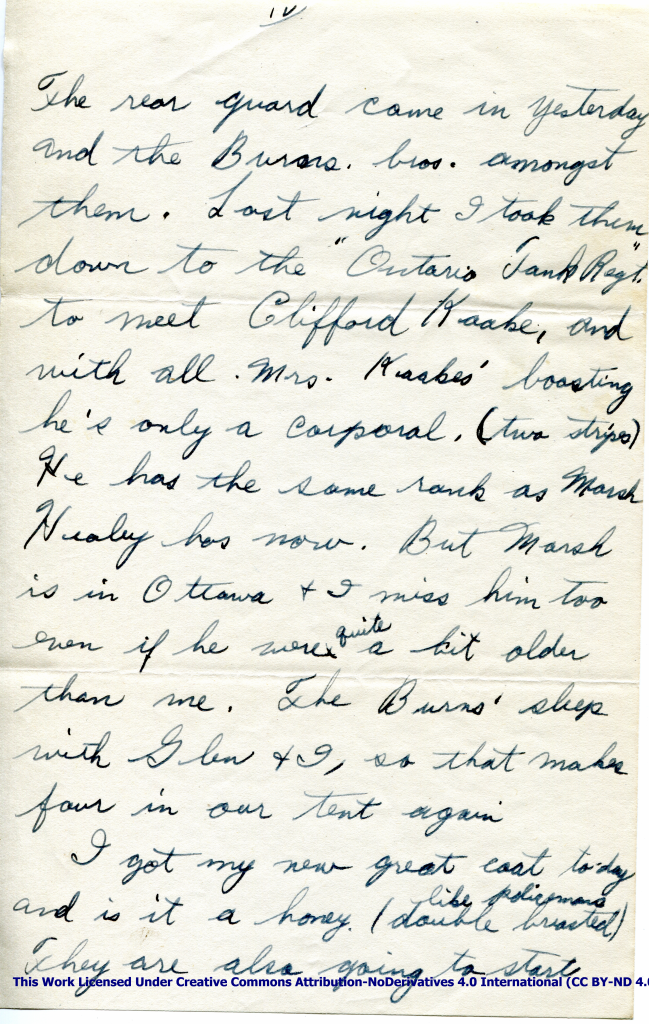 IV
The rear guard came in yesterday
and the Burns. bros. amongst
them. Last night I took them
down to the "Ontario Tank Regt."
to meet Clifford Kaake, and
with all Mrs. Kaakes' boasting
he's only a corporal. (two stripes)
He has the same rank as Marsh
Healey has now. But Marsh
is in Ottawa + I miss him too
even if he were quite a bit older
than me. The Burns' sleep
with Glen + I, so that makes
four in our tent again
I got my new great coat to-day
and is it a honey. (double breasted)
like policemans
They are also going to start
This Work Licensed Under Creative Commons Attribution-NoDerivatives 4.0 International (CC BY-ND 4.0